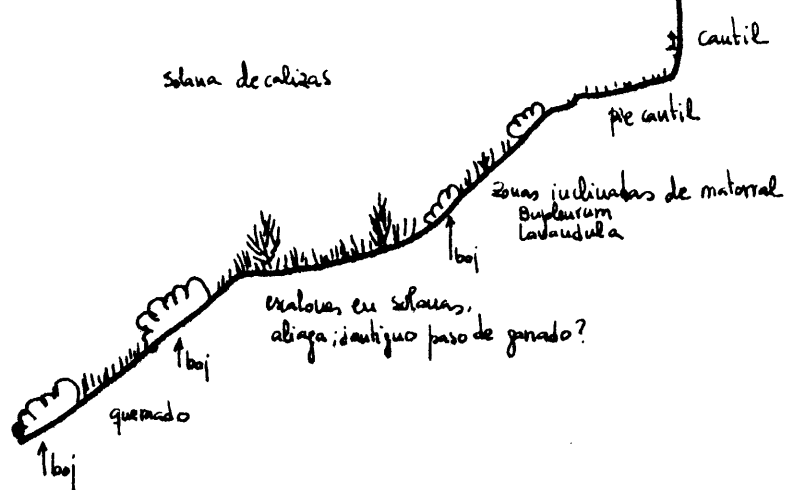 cantil
solana de calizas
pie cantil
zonas inclinadas de matorral
Bupleurum
Lavandula
boj
escalones en solanas,
aliaga; ¿antiguo paso de ganado?
boj
quemado
boj